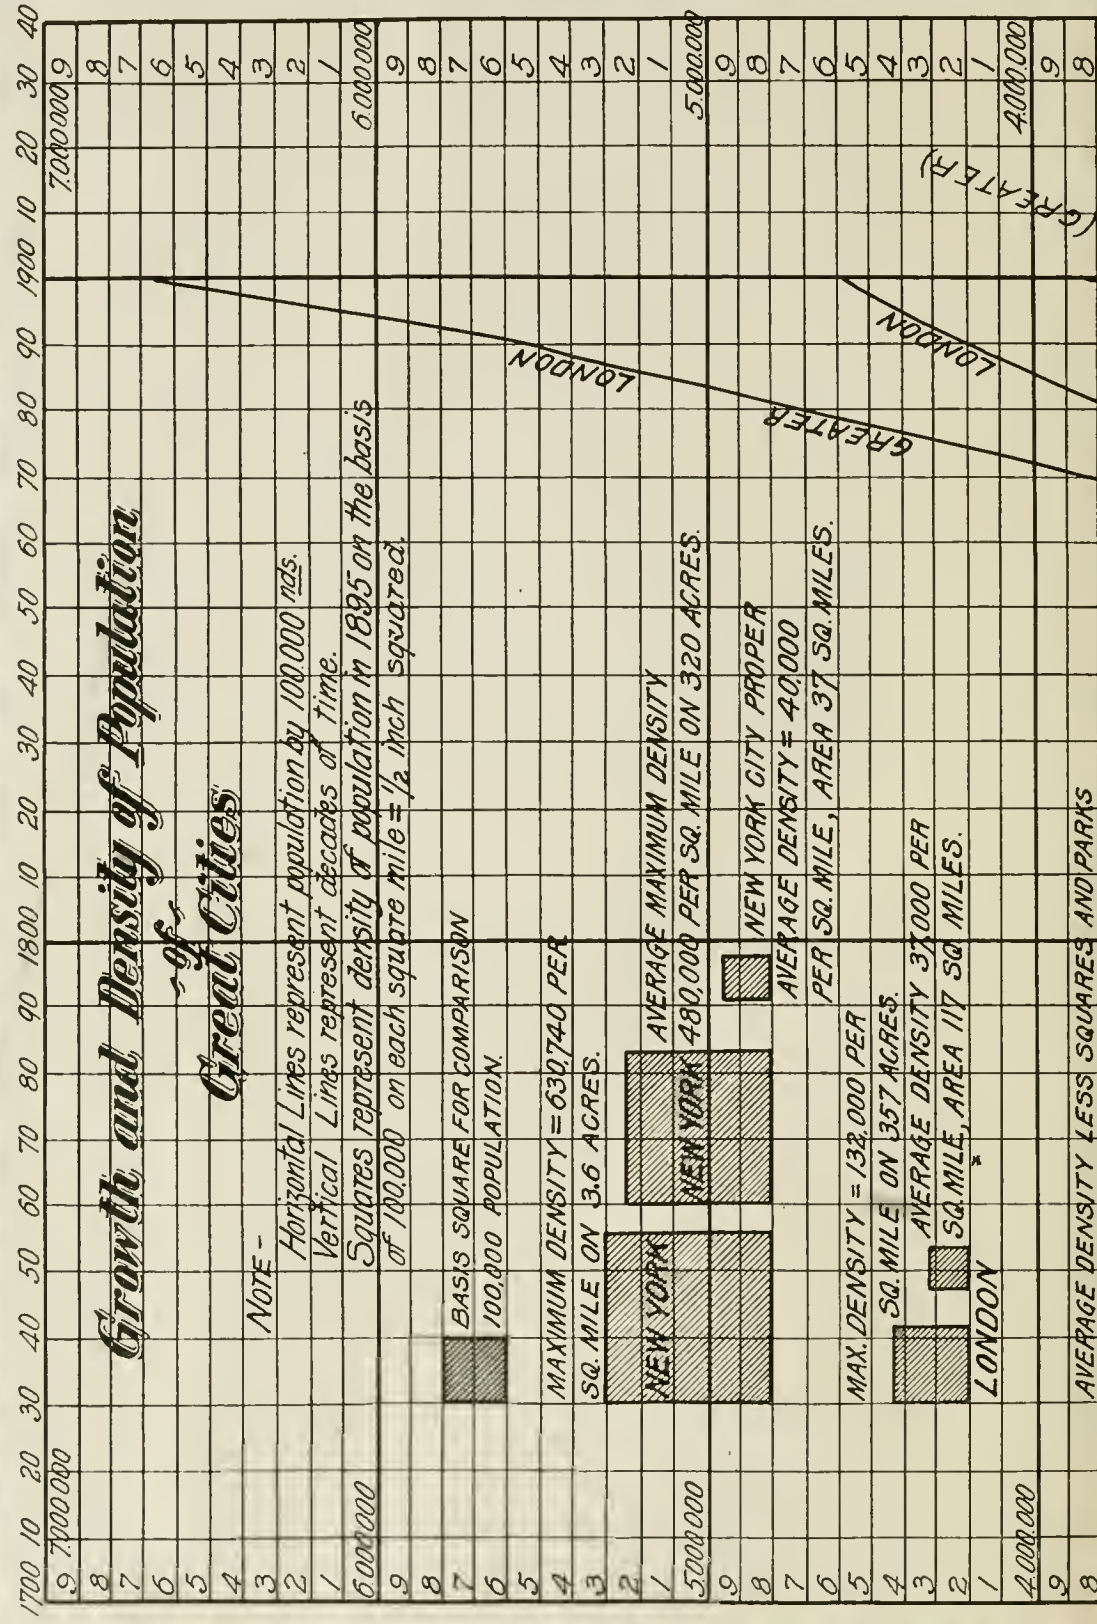 1700 10 20 30 40 50 60 70 80 90 1800 10 20 30 40 50 60 70 80 90 1900 10 20 30 40
7.000000
9
8
7
6
5
4
3
2
1
6.000.000
9
8
7
6
5
4
3
2
1
5.000.000
9
8
7
6
5
4
3
2
1
4.000.000
9
8
Growth and Density of Population
of
Great Cities
NOTE-
Horizontal Lines represent population by 100.000 nds.
Vertical Lines represent decades of time.
Squares represent density of population in 1895 on the basis
of 100.000 on each square mile = 1/2 inch squared.
BASIS SQUARE FOR COMPARISON
100,000 POPULATION.
MAXIMUM DENSITY = 630740 PER
SQ. MILE ON 3.6 ACRES.
NEW YORK
AVERAGE MAXIMUM DENSITY
480,000 PER SQ. MILE ON 320 ACRES.
NEW YORK
NEW YORK CITY PROPER
AVERAGE DENSITY = 40,000
PER SQ. MILE, AREA 37 SQ. MILES.
MAX. DENSITY = 132,000 PER
SQ. MILE ON 357 ACRES.
AVERAGE DENSITY 37,000 PER
SQ. MILE, AREA 117 SQ. MILES.
LONDON
AVERAGE DENSITY LESS SQUARES AND PARKS
GREATER LONDON
LONDON
(GREATER)
7.000000
9
8
7
6
5
4
3
2
1
6.000.000
9
8
7
6
5
4
3
2
1
5.000.000
9
8
7
6
5
4
3
2
1
4.000.000
9
8